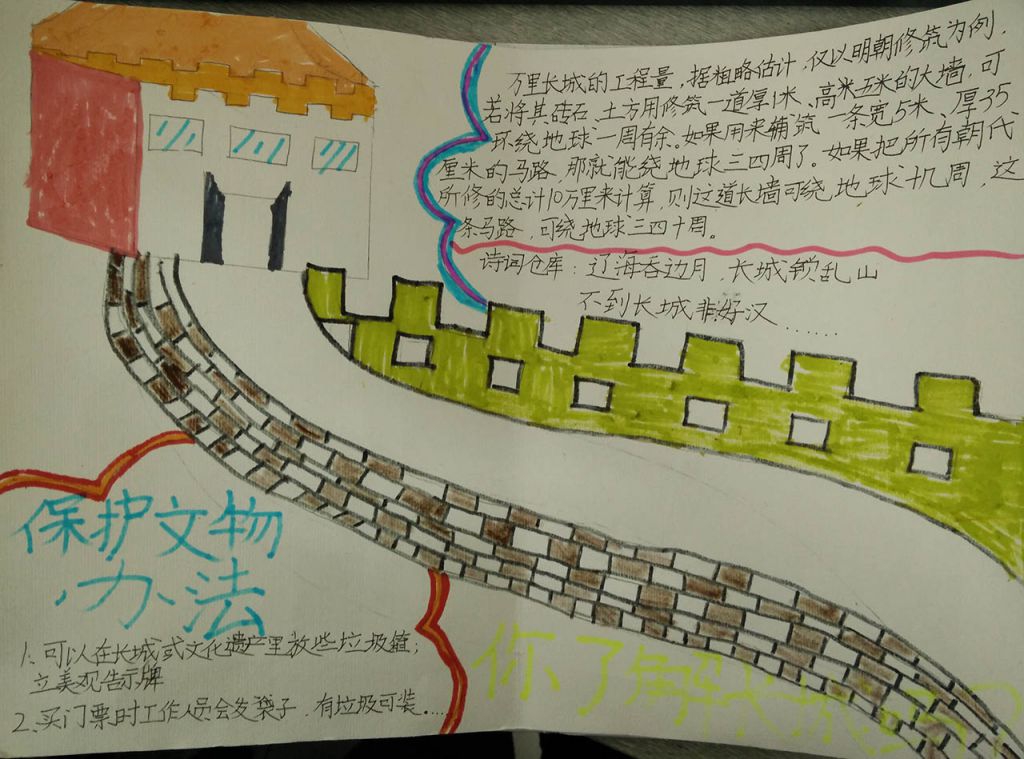 万里长城的工程量，据粗略估计，仅以明朝修筑为例，
若将其砖石、土方用修筑一道厚1米、高米五米的大墙，可
环绕地球一周有余。如果用来铺筑一条宽5米、厚35
厘米的马路，那就能绕地球三四周了。如果把所有朝代
所修的总计10万里来计算，则这道长墙可绕地球十几周，这
条马路，可绕地球三四十周。
诗词仓库：辽海吞边月，长城锁乱山
不到长城非好汉……
保护文物
办法
1、可以在长城或文化遗产里放些垃圾箱；
立美观告示牌
2、买门票时工作人员会发袋子，有垃圾可装……
你了解长城吗？